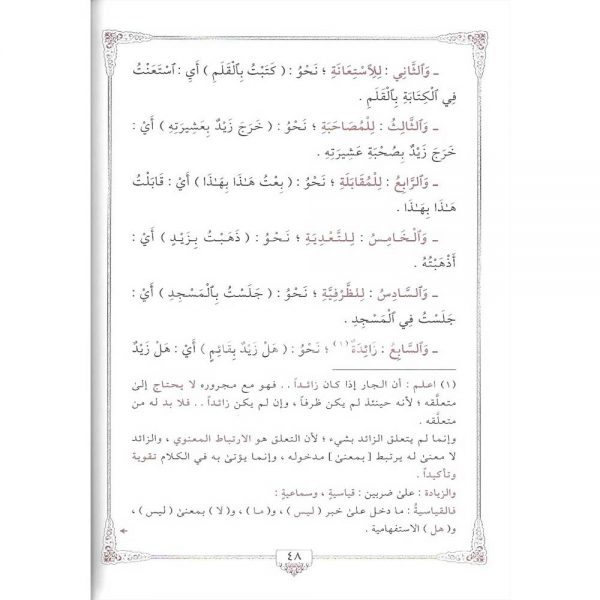 ـ وَٱلثَّانِي : لِلِٱسْتِعَانَةِ ؛ نَحْوُ : ( كَتَبْتُ بِٱلْقَلَمِ ) أَيِ : ٱسْتَعَنْتُ
فِي ٱلْكِتَابَةِ بِٱلْقَلَمِ .
ـ وَٱلثَّالِثُ : لِلْمُصَاحَبَةِ ؛ نَحْوُ : ( خَرَجَ زَيْدٌ بِعَشِيرَتِهِ ) أَيْ :
خَرَجَ زَيْدٌ بِصُحْبَةِ عَشِيرَتِهِ .
ـ وَٱلرَّابِعُ : لِلْمُقَابَلَةِ ؛ نَحْوُ : ( بِعْتُ هَـٰذَا بِهَـٰذَا ) أَيْ : قَابَلْتُ
هَـٰذَا بِهَـٰذَا .
ـ وَٱلْخَامِسُ : لِلتَّعْدِيَةِ ؛ نَحْوُ : ( ذَهَبْتُ بِزَيْدٍ ) أَيْ :
أَذْهَبْتُهُ .
ـ وَٱلسَّادِسُ : لِلظَّرْفِيَّةِ ؛ نَحْوُ : ( جَلَسْتُ بِٱلْمَسْجِدِ ) أَيْ :
جَلَسْتُ فِي ٱلْمَسْجِدِ .
ـ وَٱلسَّابِعُ : زَائِدَةٌ (١) ؛ نَحْوُ : ( هَلْ زَيْدٌ بِقَائِمٍ ) أَيْ : هَلْ زَيْدٌ
(١) اعلم : أن الجار إذا كان زائداً . . فهو مع مجروره لا يحتاج إلىٰ
متعلَّقه ؛ لأنه حينئذ لم يكن ظرفاً ، وإن لم يكن زائداً . . فلا بد له من
متعلَّقه .
وإنما لم يتعلق الزائد بشيء ؛ لأن التعلق هو الارتباط المعنوي ، والزائد
لا معنىٰ له يرتبط [بمعنىٰ] مدخوله ، وإنما يؤتىٰ به في الكلام تقوية
وتأكيداً .
والزيادة : علىٰ ضربين : قياسيةٍ ، وسماعيةٍ :
فالقياسيةُ : ما دخل علىٰ خبر ( ليس ) ، و( ما ) ، و( لا ) بمعنىٰ ( ليس ) ،
و( هل ) الاستفهامية .
٤٨